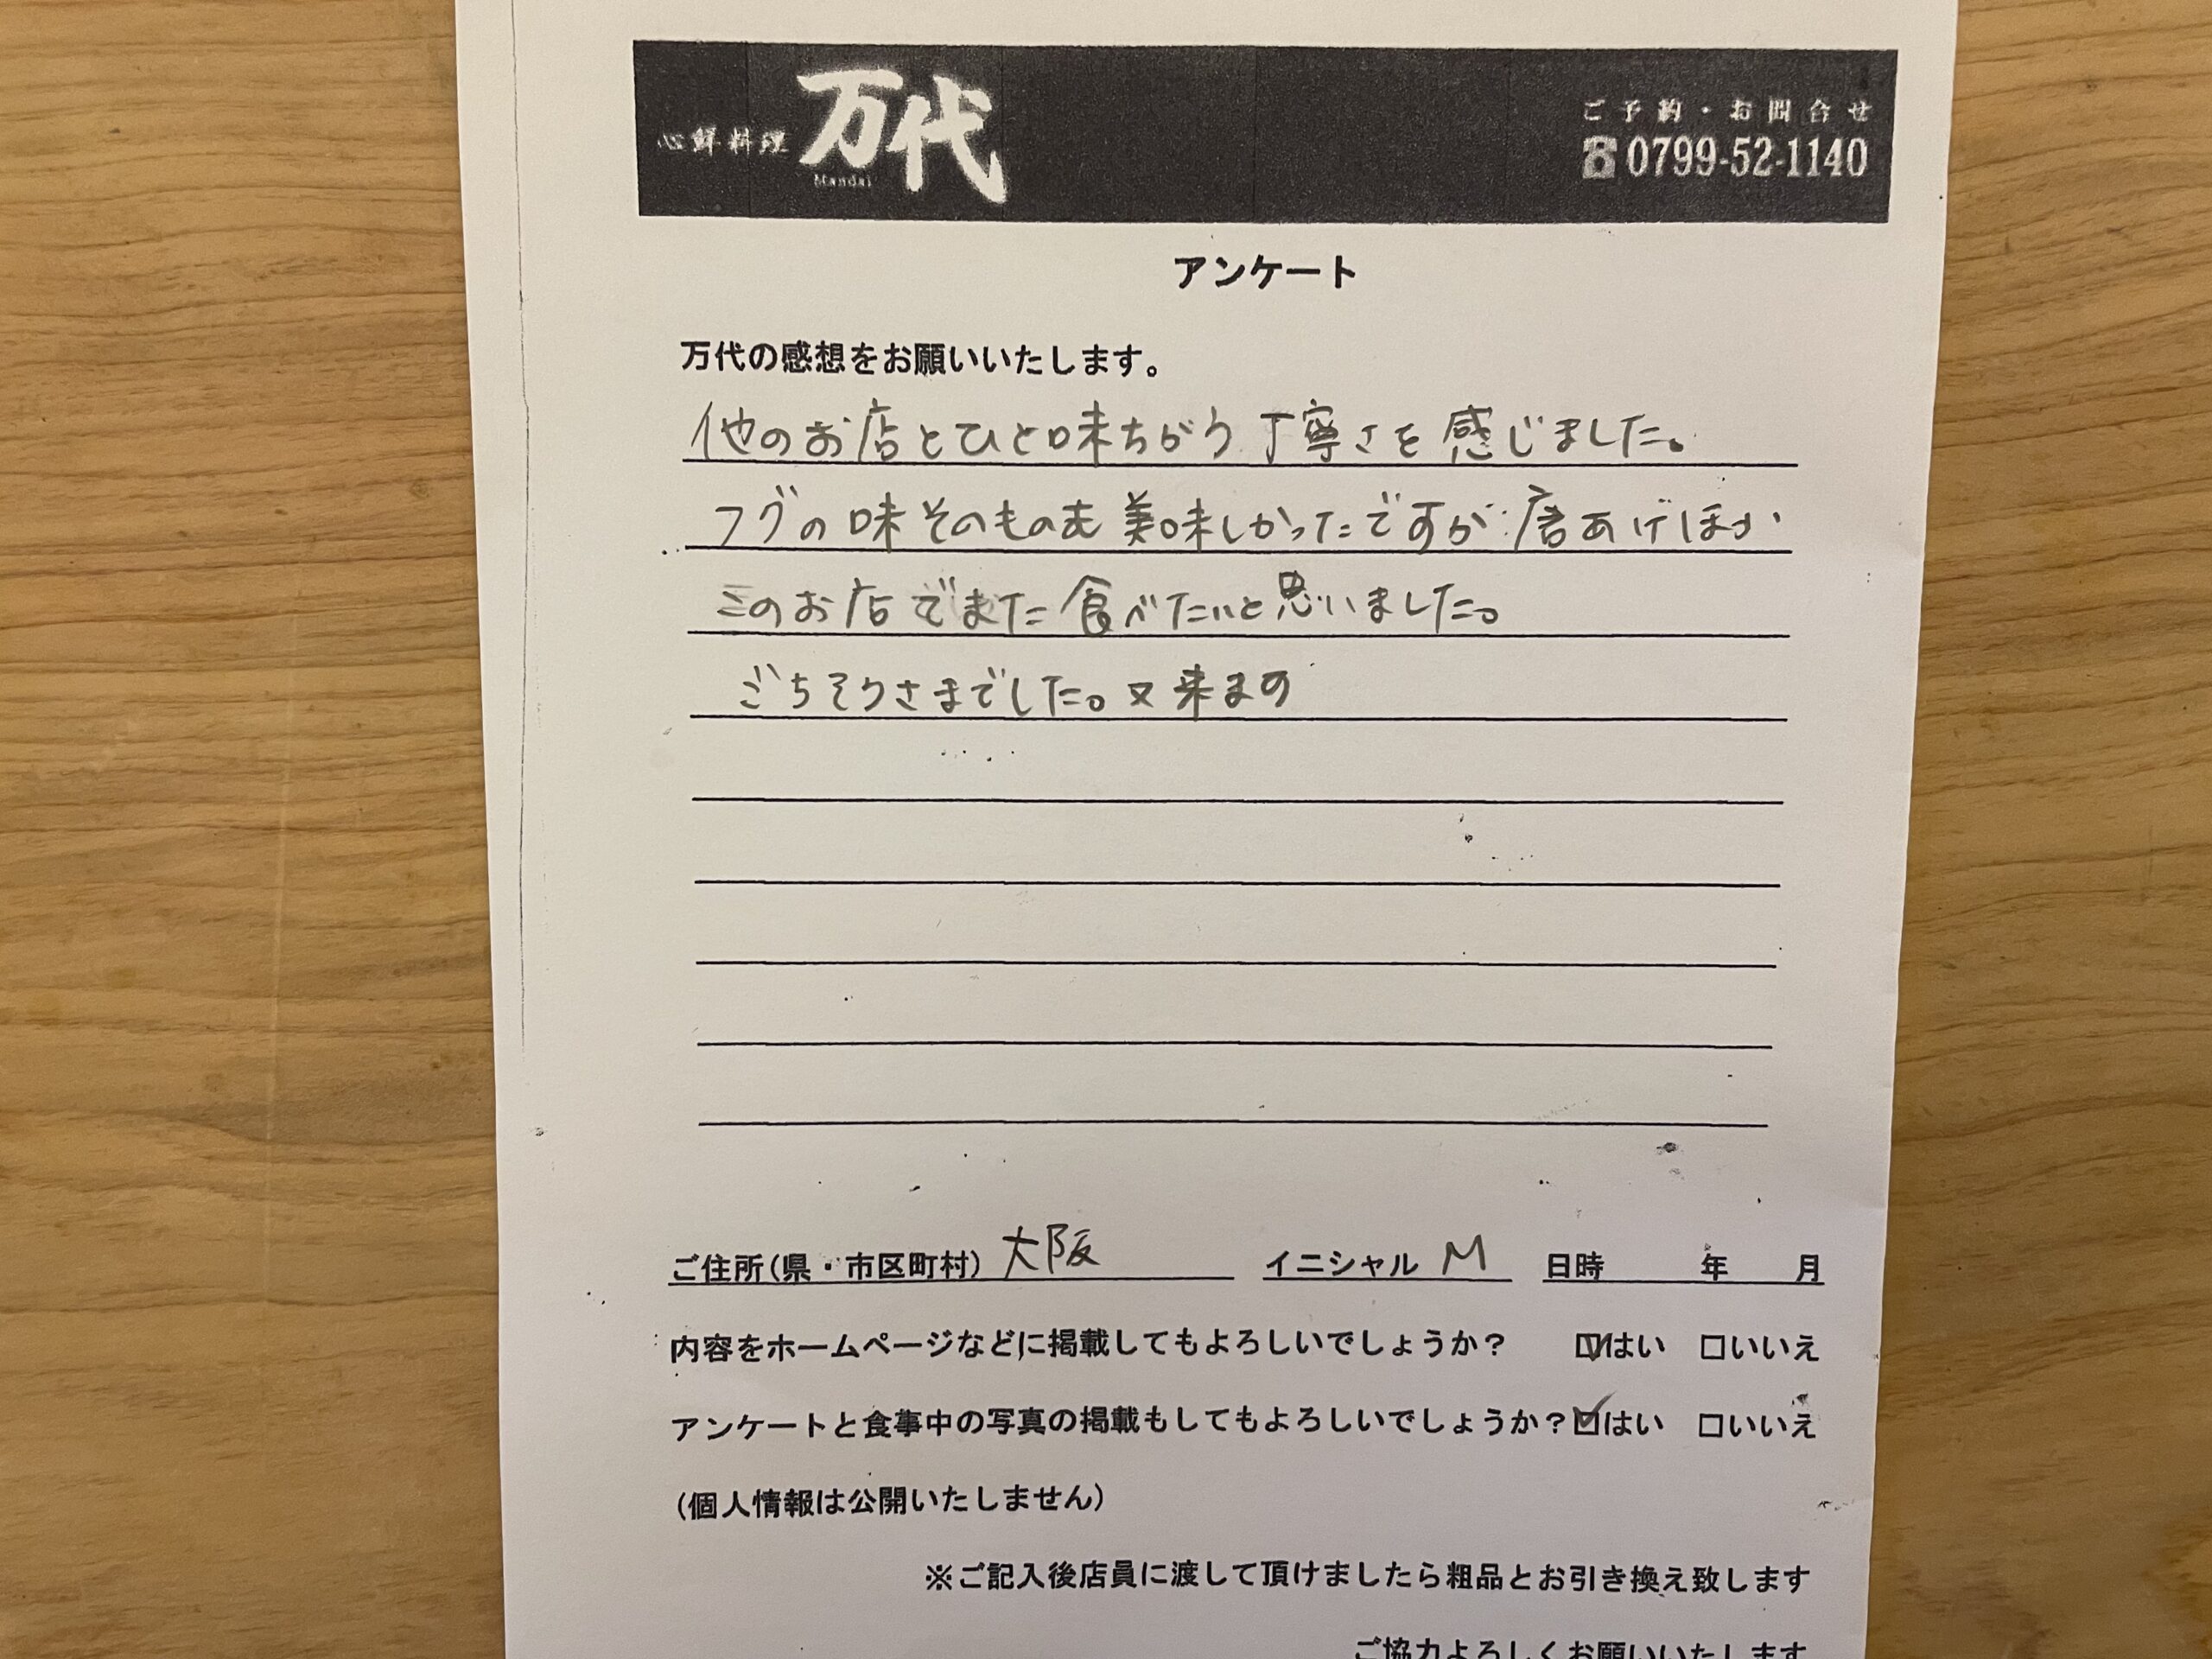 心鮮料理 万代
Mandai
ご予約・お問合せ
☎0799-52-1140
アンケート
万代の感想をお願いいたします。
他のお店とひと味ちがう丁寧さを感じました。
フグの味そのものも美味しかったですが唐あげほか
このお店でまた食べたいと思いました。
ごちそうさまでした。又来ます
ご住所(県・市区町村) 大阪 イニシャル M 日時 年 月
内容をホームページなどに掲載してもよろしいでしょうか? ☑はい □いいえ
アンケートと食事中の写真の掲載もしてもよろしいでしょうか?☑はい □いいえ
(個人情報は公開いたしません)
※ご記入後店員に渡して頂けましたら粗品とお引き換え致します
ご協力よろしくお願いいたします